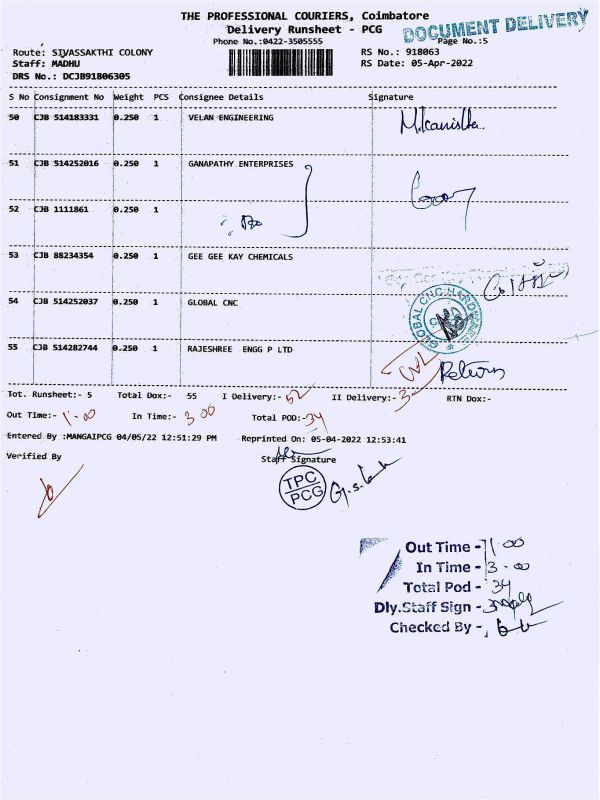 THE PROFESSIONAL COURIERS, Coimbatore
Delivery Runsheet - PCG
DOCUMENT DELIVERY
Phone No.:0422-3505555
Page No.:5
Route: SIVASSAKTHI COLONY
RS No.: 918063
Staff: MADHU
RS Date: 05-Apr-2022
DRS No.: DCJB91806305
S No Consignment No Weight PCS Consignee Details Signature
50 CJB 514183331 0.250 1 VELAN ENGINEERING
51 CJB 514252016 0.250 1 GANAPATHY ENTERPRISES
52 CJB 1111861 0.250 1
53 CJB 88234354 0.250 1 GEE GEE KAY CHEMICALS
54 CJB 514252037 0.250 1 GLOBAL CNC
GLOBAL CNC HARDWARES
55 CJB 514282744 0.250 1 RAJESHREE ENGG P LTD
Return
Tot. Runsheet:- 5 Total Dox:- 55 I Delivery:- 52 II Delivery:- 3 RTN Dox:-
Out Time:- 1.00 In Time:- 3 00 Total POD:- 34
Entered By :MANGAIPCG 04/05/22 12:51:29 PM Reprinted On: 05-04-2022 12:53:41
Verified By Staff Signature
TPC
PCG
Out Time - 1 00
In Time - 3 - 00
Total Pod - 34
Dly.Staff Sign -
Checked By -